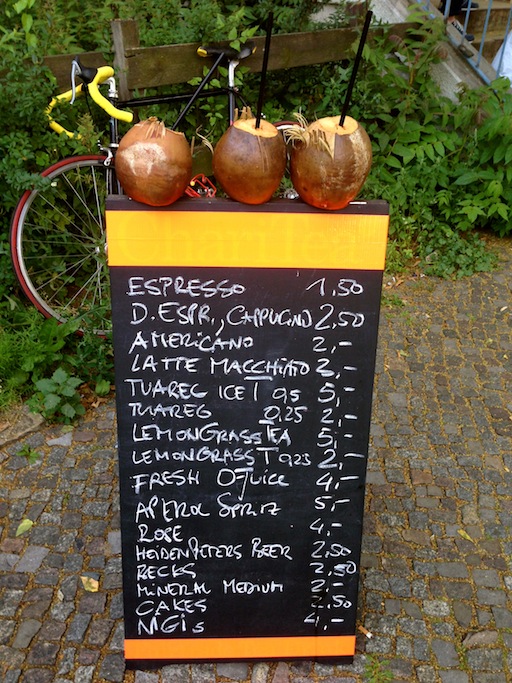 ESPRESSO 1,50
D. ESPR., CAPPUCINO 2,50
AMERICANO 2,-
LATTE MACCHIATO 3,-
TUAREG ICE T 0,5 5,-
TUAREG 0,25 2,-
LEMONGRASS TEA 5,-
LEMONGRASS T 0,23 2,-
FRESH O-JUICE 4,-
APEROL SPRITZ 5,-
ROSE 4,-
HEIDENPETERS BEER 2,50
BECKS 2,50
MINERAL MEDIUM 2,-
CAKES 2,50